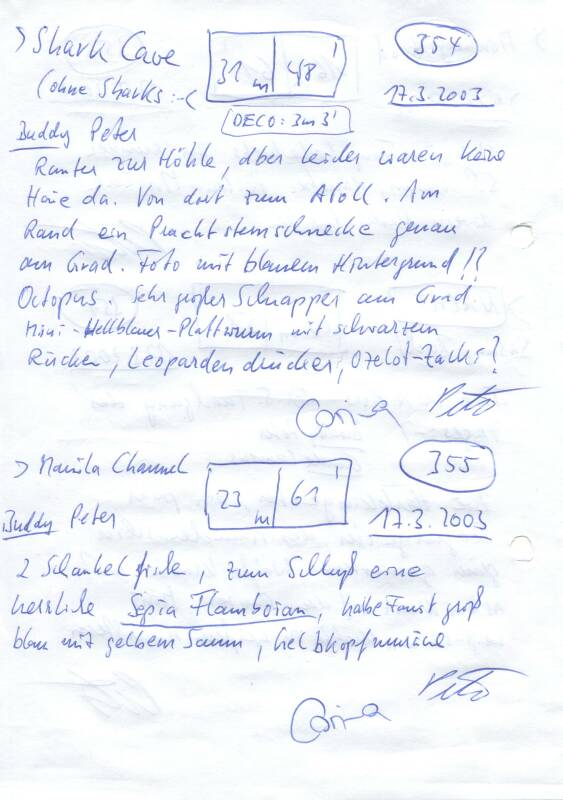 > Shark Cave
31 m | 48'
354
(ohne Sharks :-(
17.3.2003
DECO: 3m 3'
Buddy Peter
Runter zur Höhle, aber leider waren keine
Haie da. Von dort zum Atoll. Am
Rand ein Prachtsternschnecke genau
am Grad. Foto mit blauem Hintergrund!!
Octopus. Sehr großer Schnapper am Grad.
Mini-Hellblauer-Plattwurm mit schwarzem
Rücken, Leoparden drücker, Ozelot-Zacki?
Corina Peter
> Manila Channel
23 m | 61'
355
Buddy Peter
17.3.2003
2 Schaukelfische, zum Schluß eine
herrliche Sepia Flamboian, halbe Faust groß
blau mit gelbem Saum, Gelbkopfmuräne
Corina Peter